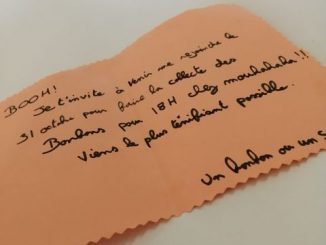 BOOH!
Je t'invite à venir me rejoindre le
31 octobre pour faire la collecte des
Bonbons pour 18H chez mouhahaha!!
Viens le plus terrifiant possible.
Un bonbon ou un s